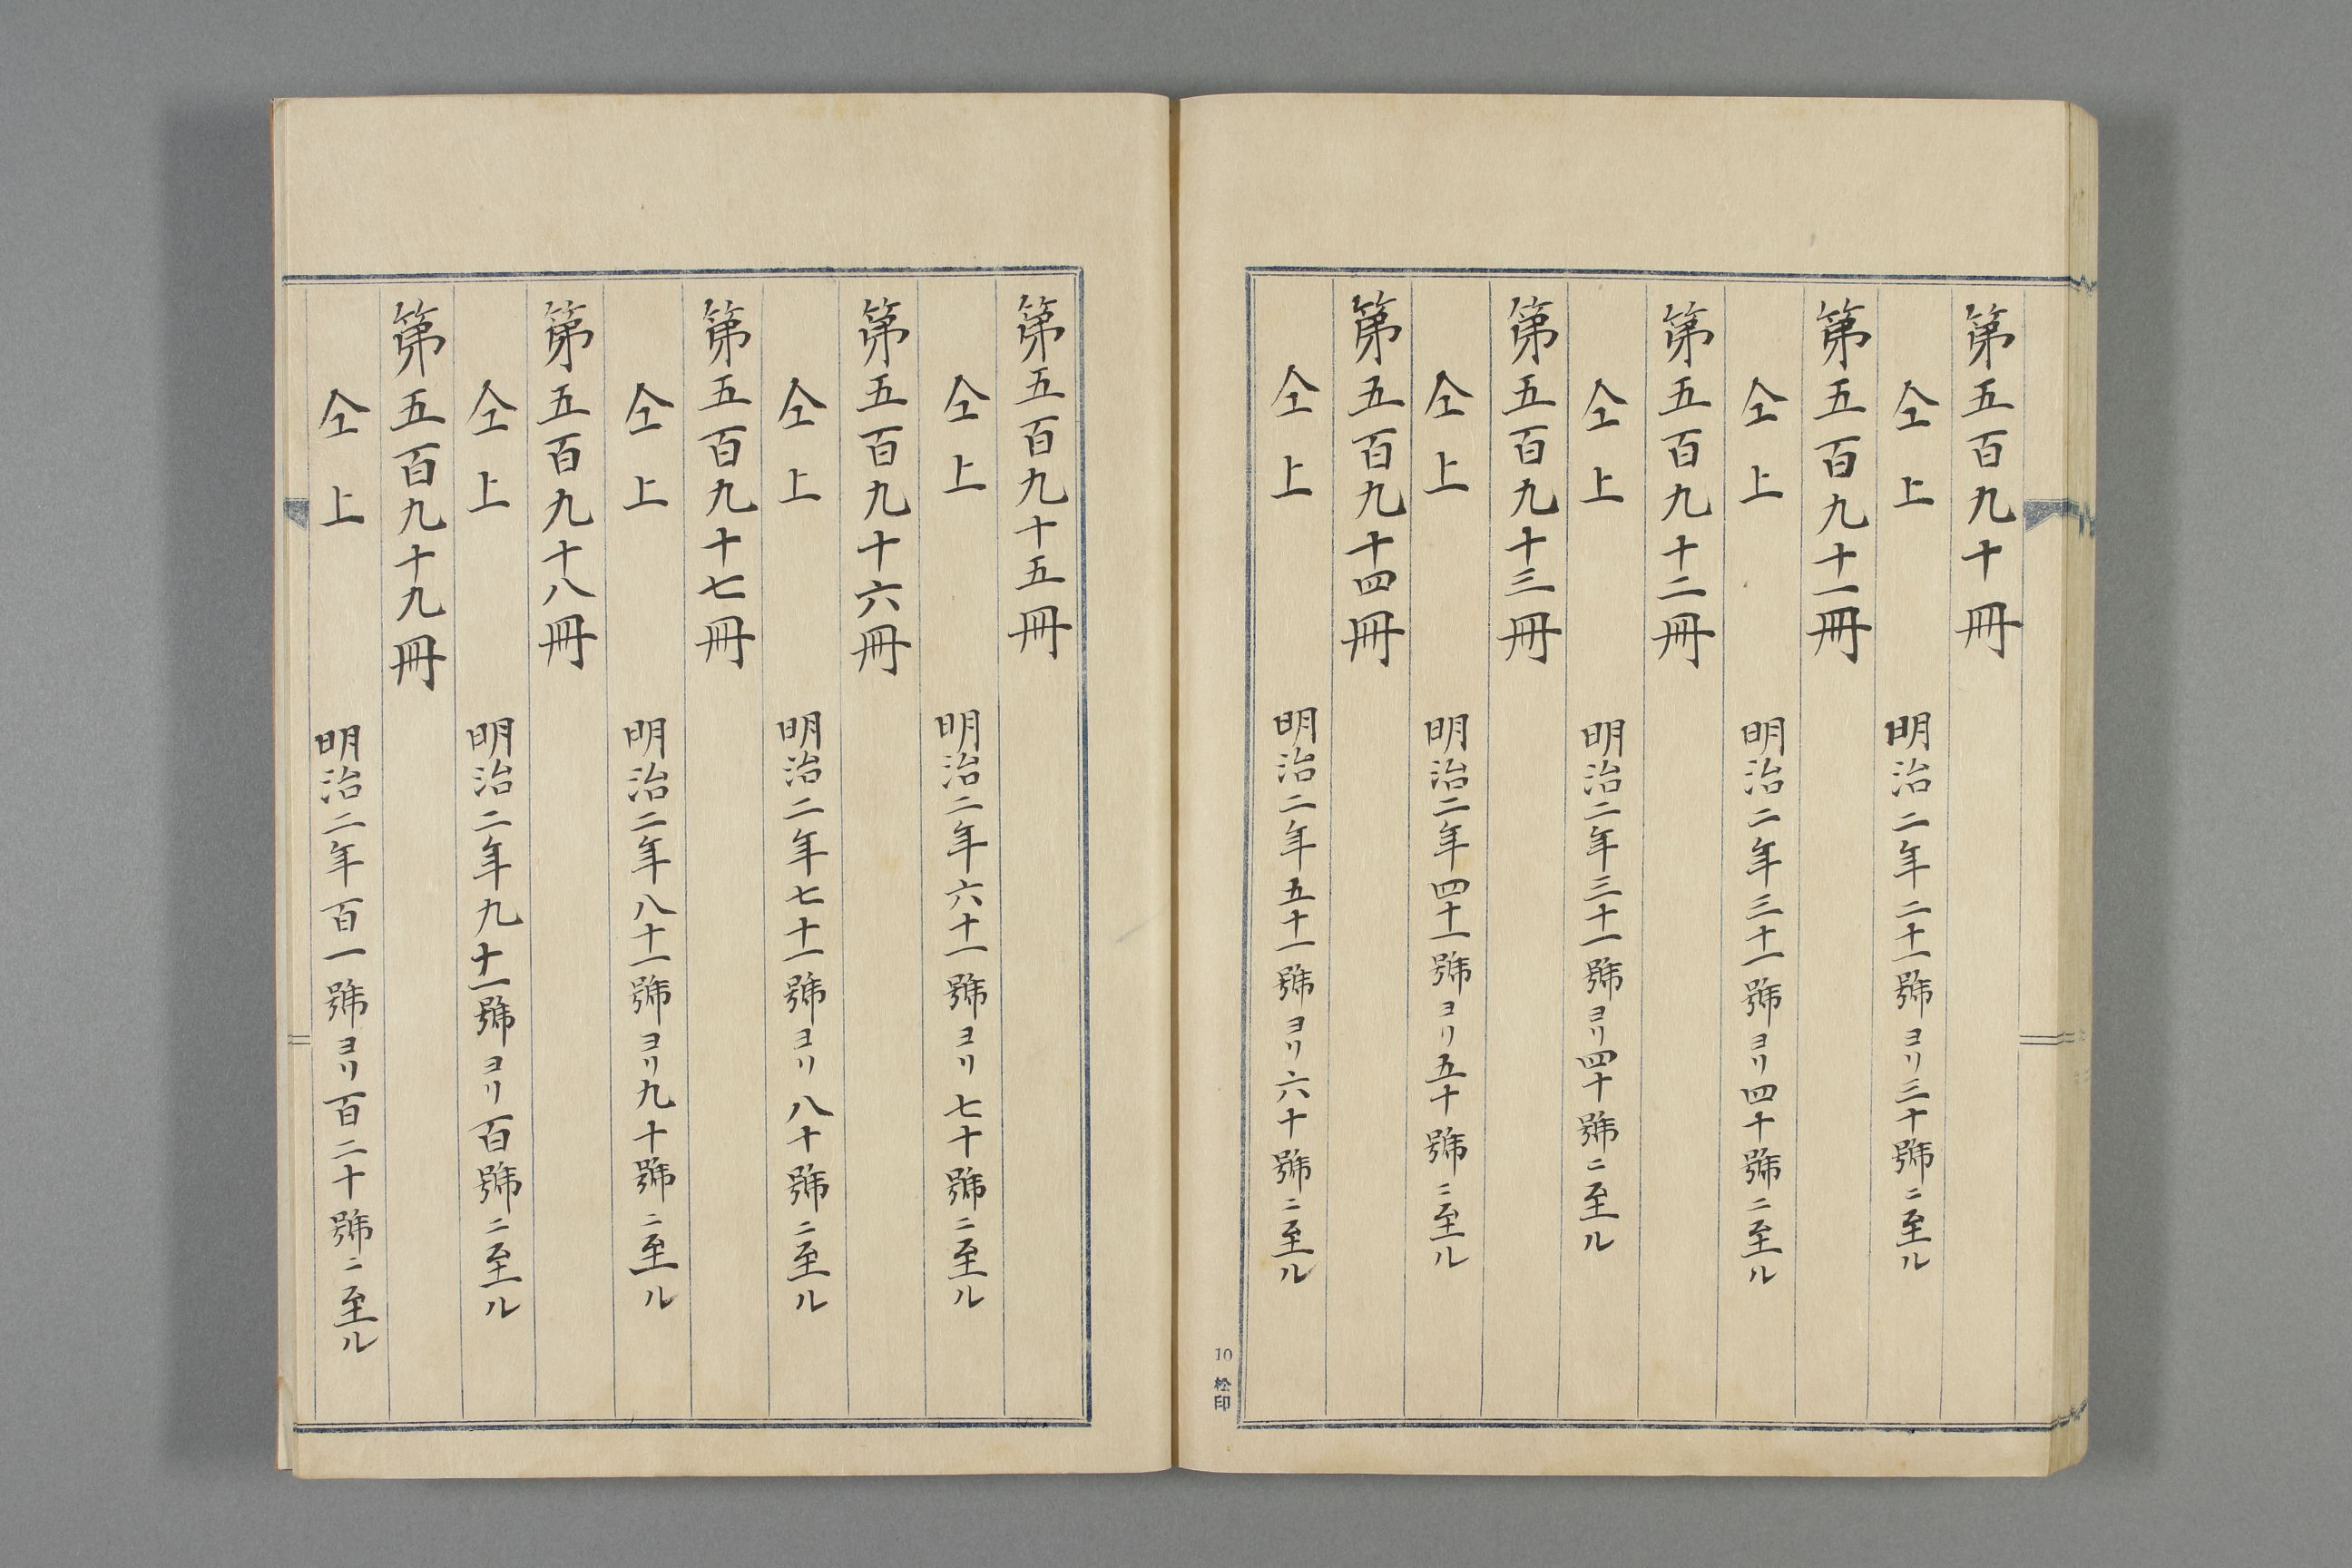 第五百九十冊
仝上 明治二年二十一號ヨリ三十號ニ至ル
第五百九十一冊
仝上 明治二年三十一號ヨリ四十號ニ至ル
第五百九十二冊
仝上 明治二年三十一號ヨリ四十號ニ至ル
第五百九十三冊
仝上 明治二年四十一號ヨリ五十號ニ至ル
第五百九十四冊
仝上 明治二年五十一號ヨリ六十號ニ至ル
10 松印
第五百九十五冊
仝上 明治二年六十一號ヨリ七十號ニ至ル
第五百九十六冊
仝上 明治二年七十一號ヨリ八十號ニ至ル
第五百九十七冊
仝上 明治二年八十一號ヨリ九十號ニ至ル
第五百九十八冊
仝上 明治二年九十一號ヨリ百號ニ至ル
第五百九十九冊
仝上 明治二年百一號ヨリ百二十號ニ至ル